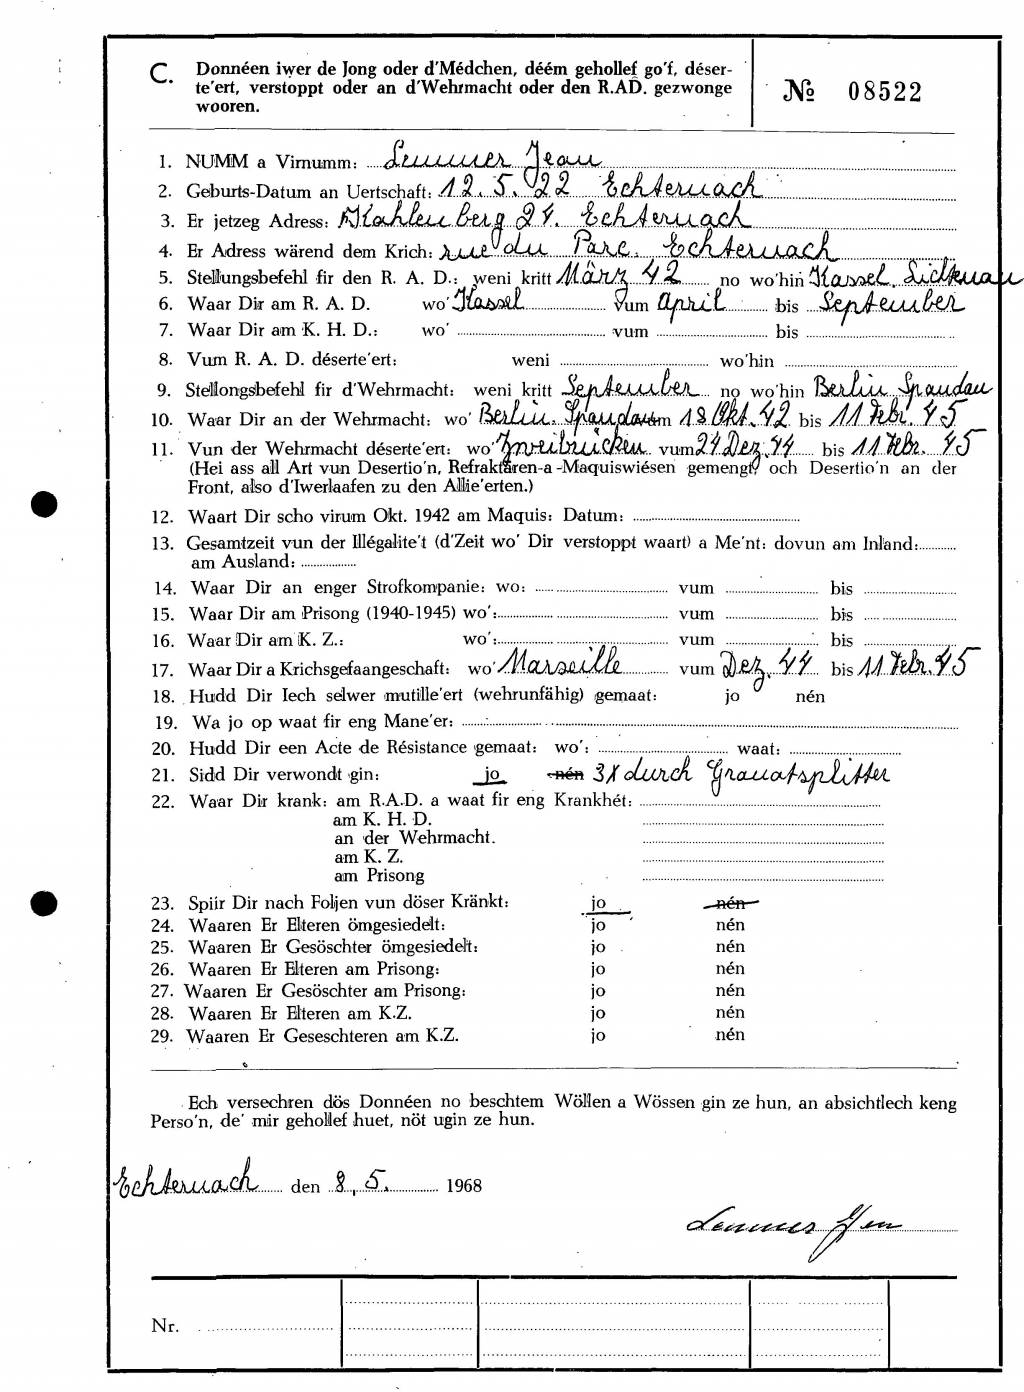 C. Donnéen iwer de Jong oder d'Médchen, déém gehollef go'f, déser-
te'ert, verstoppt oder an d'Wehrmacht oder den R.AD. gezwonge
wooren.
№ 08522
1. NUMM a Virnumm: Lemmer Jean
2. Geburts-Datum an Uertschaft: 12.5.22 Echternach
3. Er jetzeg Adress: Kahlenberg 24. Echternach
4. Er Adress wärend dem Krich: rue du Parc. Echternach
5. Stellungsbefehl fir den R. A. D.: weni kritt März 42 no wo'hin Kassel.
6. Waar Dir am R. A. D. wo' Kassel vum April bis September
7. Waar Dir am K. H. D.: wo' vum bis
8. Vum R. A. D. déserte'ert: weni wo'hin
9. Stellongsbefehl fir d'Wehrmacht: weni kritt September no wo'hin Berlin Spandau
10. Waar Dir an der Wehrmacht: wo' Berlin. Spandau vum 18 Okt. 42 bis 11 Febr. 45
11. Vun der Wehrmacht déserte'ert: wo' Zweibrücken vum 24 Dez. 44 bis 11 Febr. 45
(Hei ass all Art vun Desertio'n, Refraktären-a-Maquiswiésen gemengt, och Desertio'n an der
Front, also d'Iwerlaafen zu den Allie'erten.)
12. Waart Dir scho virum Okt. 1942 am Maquis: Datum:
13. Gesamtzeit vun der Illégalite't (d'Zeit wo' Dir verstoppt waart) a Me'nt: dovun am Inland:
am Ausland:
14. Waar Dir an enger Strofkompanie: wo: vum bis
15. Waar Dir am Prisong (1940-1945) wo': vum bis
16. Waar Dir am K. Z.: wo': vum bis
17. Waar Dir a Krichsgefaangeschaft: wo' Marseille vum Dez. 44 bis 11 Febr. 45
18. Hudd Dir Iech selwer mutille'ert (wehrunfähig) gemaat: jo nén
19. Wa jo op waat fir eng Mane'er:
20. Hudd Dir een Acte de Résistance gemaat: wo': waat:
21. Sidd Dir verwondt gin: jo nén 3X durch Granatsplitter
22. Waar Dir krank: am R.A.D. a waat fir eng Krankhét:
am K. H. D.
an der Wehrmacht.
am K. Z.
am Prisong
23. Spiir Dir nach Foljen vun döser Kränkt: jo nén
24. Waaren Er Elteren ömgesiedelt: jo nén
25. Waaren Er Gesöschter ömgesiedelt: jo nén
26. Waaren Er Elteren am Prisong: jo nén
27. Waaren Er Gesöschter am Prisong: jo nén
28. Waaren Er Elteren am K.Z. jo nén
29. Waaren Er Geseschteren am K.Z. jo nén
Ech versechren dös Donnéen no beschtem Wöllen a Wössen gin ze hun, an absichtlech keng
Perso'n, de' mir gehollef huet, nöt ugin ze hun.
Echternach den 8.5. 1968
Lemmer
Nr.